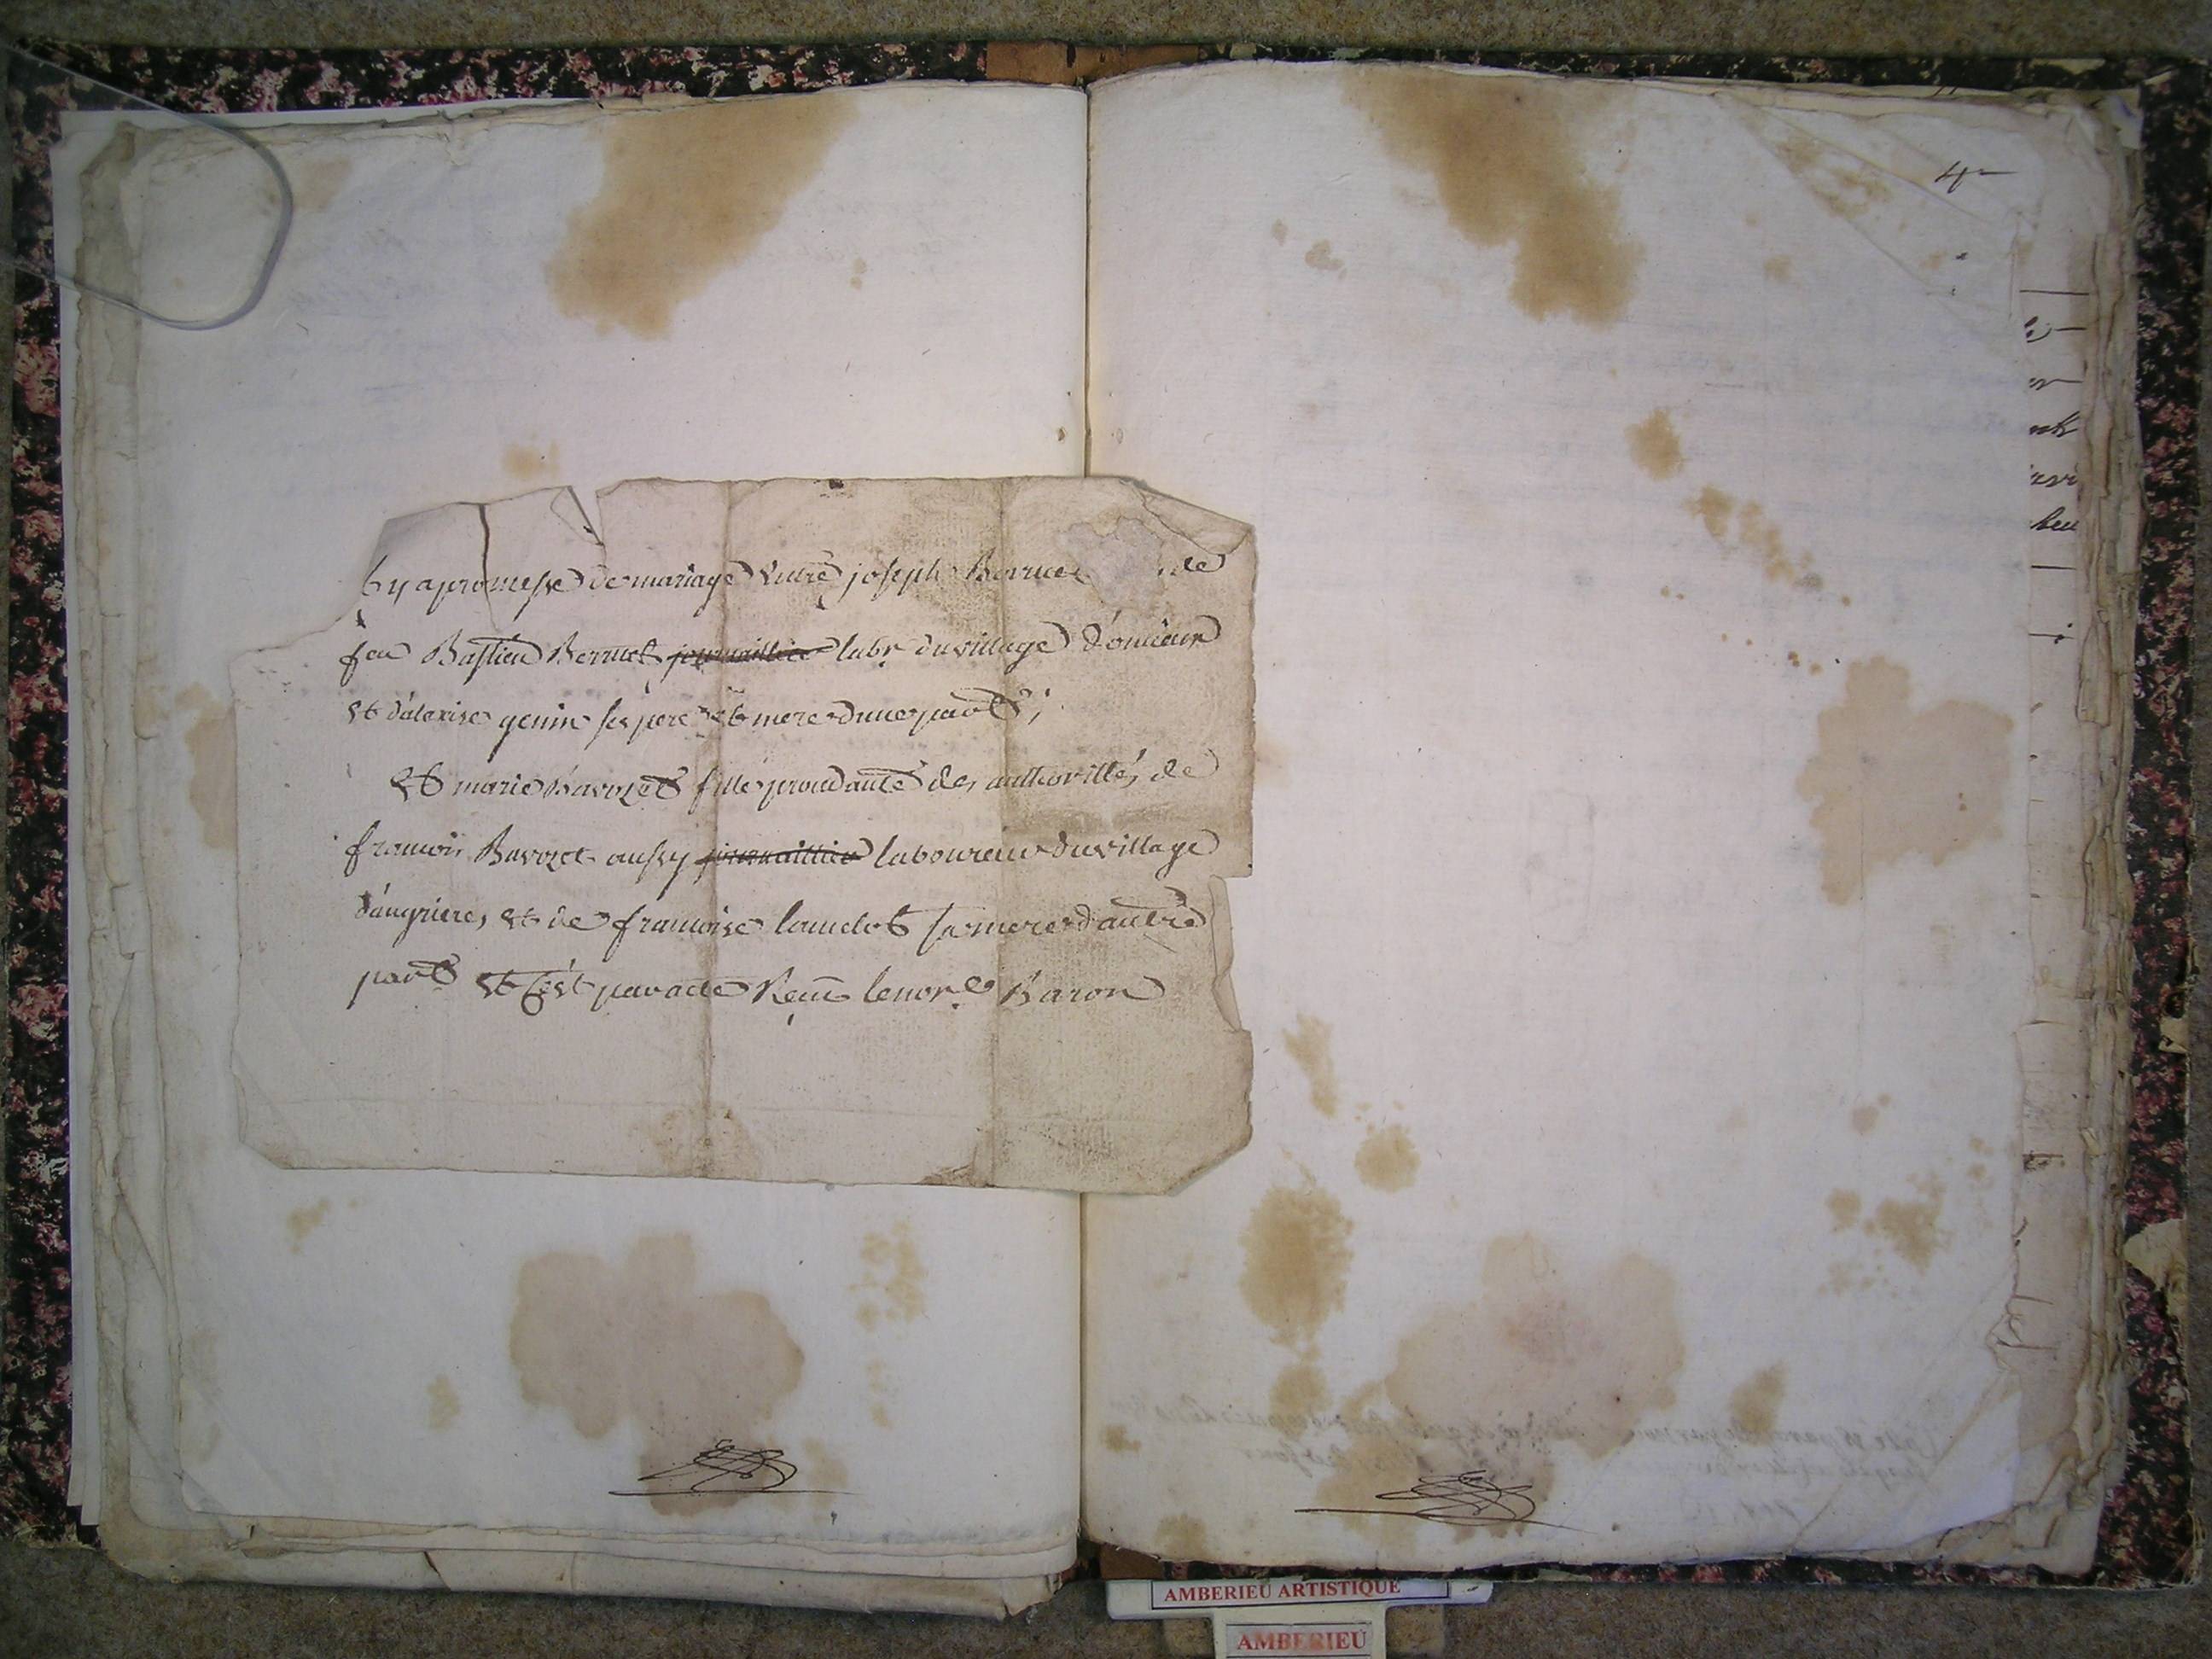 4
Il y a promesse de mariage Entre joseph Berruet de
feu Bastien Berruet journaillier labr. du village d'onciaux
Et d'alexise genin ses pere et mere d'une part;
Et marie Bavozet fille procedante des authorittés de
francois Bavozet aussy journaillier laboureur du village
d'angrieres Et de francoise lancelot sa mere d'autre
part Et C'est par acte Recu le nore. Baron
AMBERIEU ARTISTIQUE
AMBERIEU